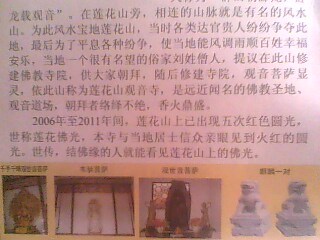 龙载观音”。在莲花山旁，相连的山脉就是有名的风水
山。为此风水宝地莲花山，当时各类达官贵人纷纷争夺此
地，最后为了平息各种纷争，使当地能风调雨顺百姓幸福
安乐，当地一个很有名望的俗家刘姓僧人，提议在此山修
建佛教寺院，供大家朝拜，随后修建寺院，观音菩萨显
灵，依此山称为莲花山观音寺，是远近闻名的佛教圣地、
观音道场，朝拜者络绎不绝，香火鼎盛。
2006年至2011年间，莲花山上已出现五次红色圆光，
世称莲花佛光，本寺与当地居士信众亲眼见到火红的圆
光。世传，结佛缘的人就能看见莲花山上的佛光。
千手千眼观世音菩萨
韦驮菩萨
观世音菩萨
麒麟一对